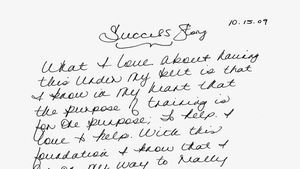 10.15.09
Success Story
What I love about having
this under my belt is that
I know in my heart that
the purpose of training is
for one purpose; to help. I
love to help. With this
foundation I know that I
my way to really